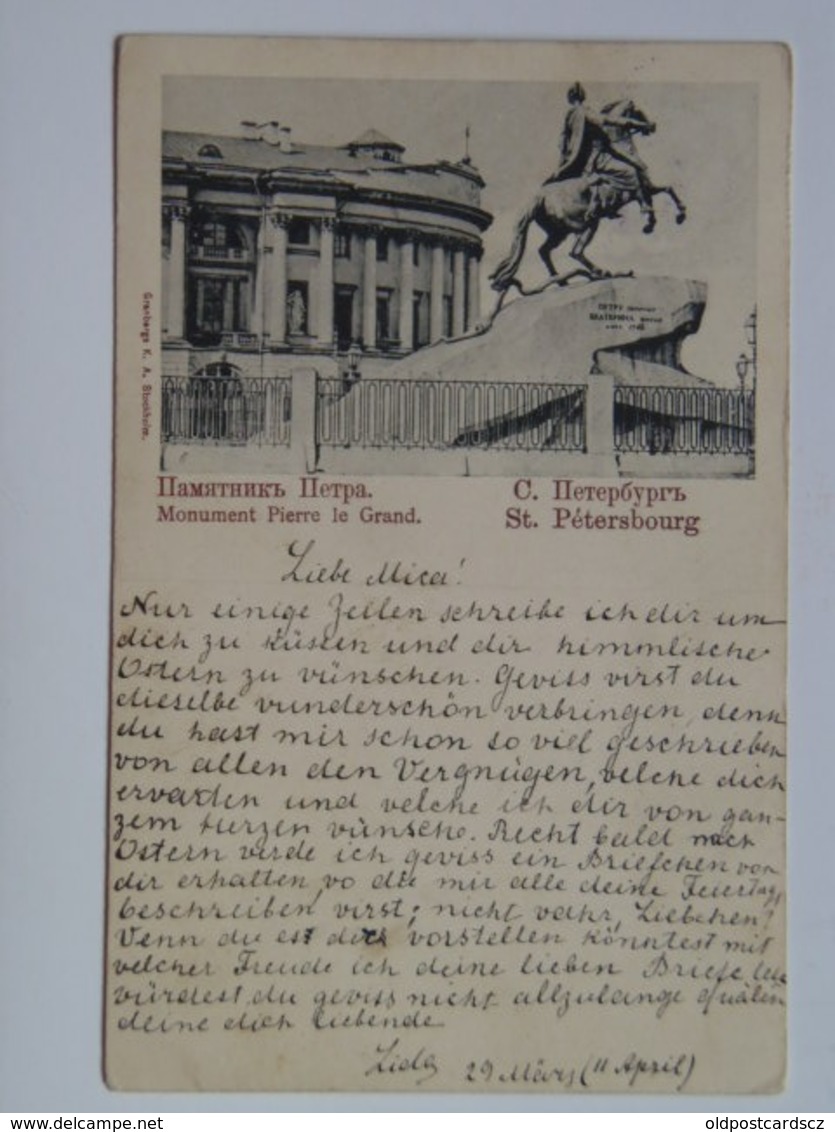 ПЕТРУ первому
ЕКАТЕРИНА вторая
лѣта 1782
Granbergs K. A. Stockholm.
Памятникъ Петра.
С. Петербургъ
Monument Pierre le Grand.
St. Pétersbourg
Liebe Mica!
Nur einige Zeilen schreibe ich dir um
dich zu küssen und dir himmlische
Ostern zu vünschen. Geviss virst du
dieselbe vunderschön verbringen, denn
du hast mir schon so viel geschrieben
von allen den Vergnügen, velche dich
ervarten und velche ich dir von gan-
zem Herzen vünsche. Recht bald nach
Ostern verde ich geviss ein Briefchen von
dir erhalten, vo du mir alle deine Feiertage
beschreiben virst; nicht vahr, Liebchen?
Venn du es dir vorstellen könntest mit
velcher Freude ich deine lieben Briefe lese
vürdest du geviss nicht allzulange quälen
deine dich liebende
Lida 29 März (11 April)
oldpostcardscz